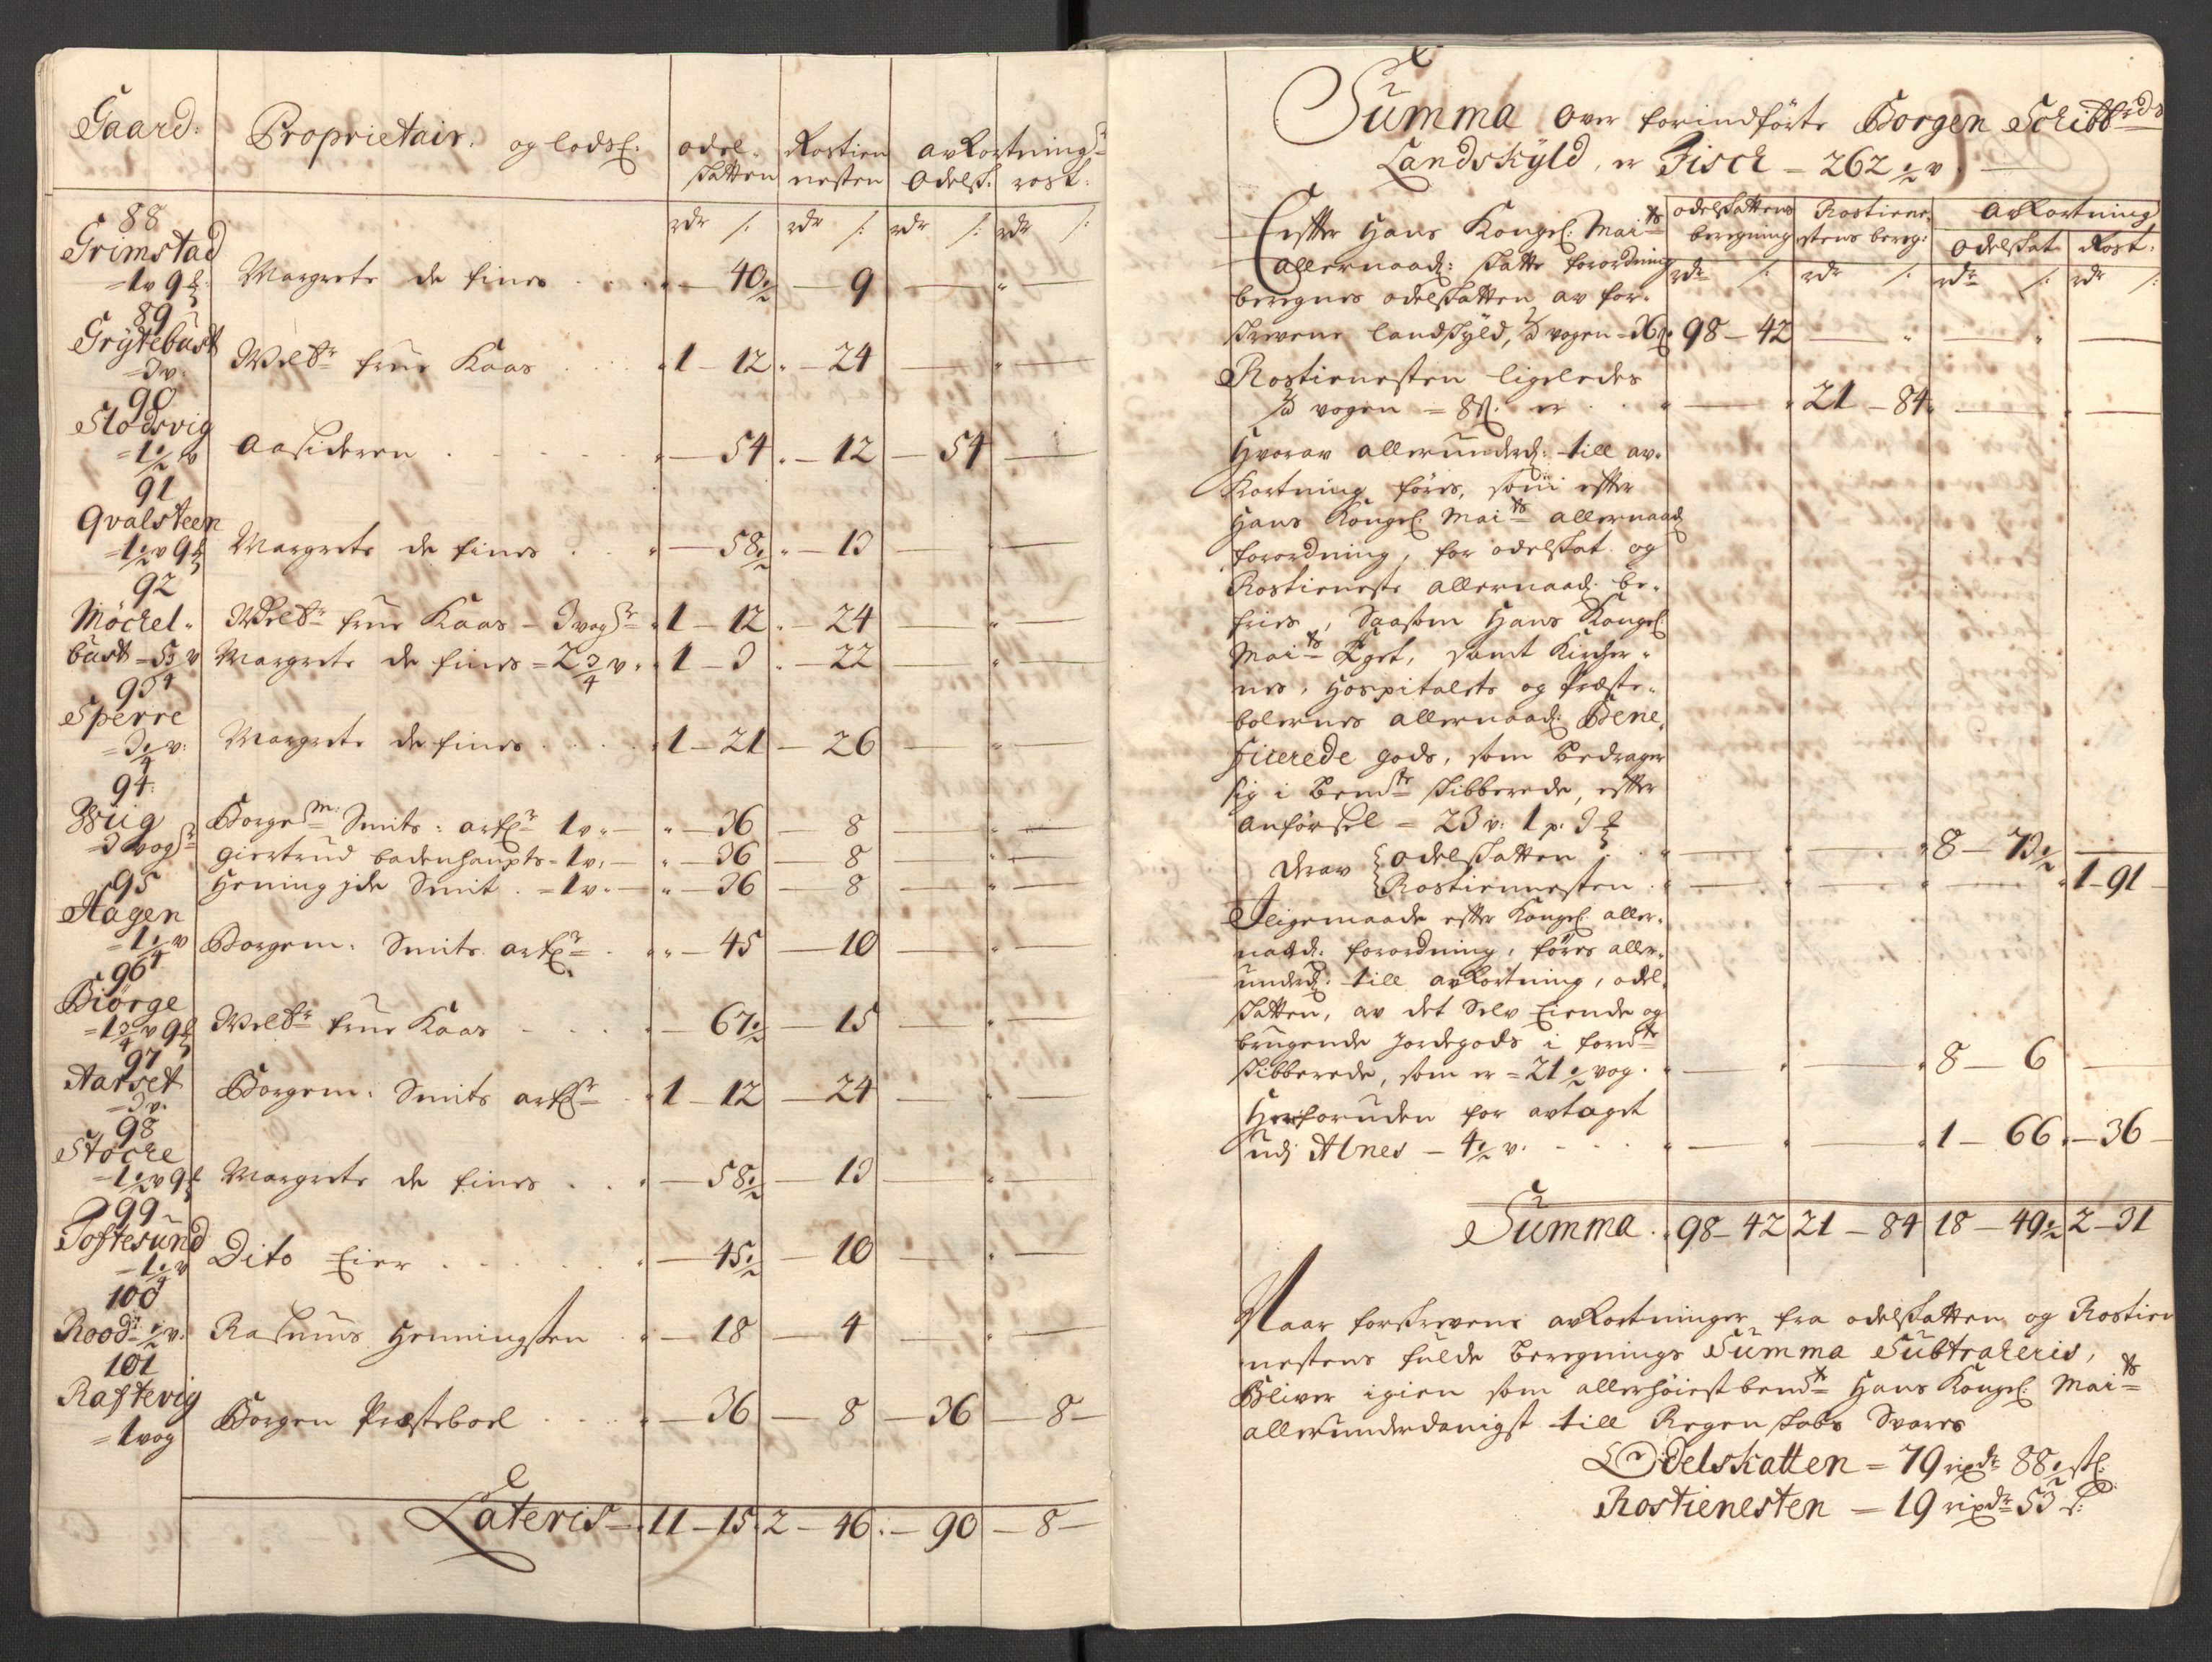 Gaard: Proprietair. og lodsE. odel- skatten Rostien nesten avkortning odelsk: rost:
rdr /: rdr /: rdr /: rdr /:
88
Grimstad
=1v 9℔ Margrete de fines 40½ — 9
89
Grÿtebust
=3v: Welbr frue Kaas 1 — 12 — 24
90
Stodsvig
=1½ v Aasideren 54 — 12 — 54
91
Qvalsteen
=1½v 9℔ Margrete de fines 58½ — 13
92
Möckel- Welbr frue Kaas — 3 vogr 1 — 12 — 24
bust — 5¾ v Margrete de fines = 2¾ v 1 — 3 — 22
93
Sperre
=3¼ v: Margrete de fines 1 — 21 — 26
94:
Wiig Borgem: Smits: arfr 1v — 36 — 8
=3 vogr giertrud badenhaupts = 1v — 36 — 8
Hening jde Smit = 1v — 36 — 8
95
Hagen
=1¼ v Borgem: Smits arfr 45 — 10
96
Biörge
=1¾ v 9℔ Welbr frue Kaas 67½ — 15
97
Aarset
=3v: Borgem: Smits arfr 1 — 12 — 24
98
Stocke
=1½v 9℔ Margrete de fines 58½ — 13
99
Toftesund
=1¼ v Dito Eier 45½ — 10
100
Rood: ½ v: Rasmus Henningsen 18 — 4
101
Raftevig
=1 vog Borgen Præsteboel 36 — 8 — 36 — 8
Lateris — 11 — 15 2 — 46 — 90 — 8
Summa over forindförte Borgen Schibbrdr
Landskÿld, er Fisck — 262½ v
odelskattens beregning Rostiene- stens bereg: Avkortning
odelskat Rost:
rdr /: rdr /: rdr /: rdr /:
Efter Hans Kongel: Maits
allernaad: skatte forordning
beregnes odelskatten av for-
skrevene landskyld, â vogen = 36 s 98 — 42
Rostienesten ligeledes
â vogen = 8 s. er 21 — 84
Hvorav allerunderd: till av-
kortning föres, som efter
Hans Kongel: Maits allernaad
forordning, for odelskat og
Rostieneste allernaad: be-
fries, Saasom Hans Kongel
Maits Eget, samt Kircher-
nes, Hospitalets og Præste-
bolernes allernaad: Bene-
ficerede gods, som bedrager
sig i bemte skibberede, efter
anförsel = 23 v: 1 p. 3 ℔
derav odelskatten 8 — 73½
Rostienesten 1 — 91
Iligemaade efter Kongel: aller-
naad: forordning, föres aller-
underd: till avkortning, odel-
skatten, av det Selv Eiende og
brugende jordegods i formte
skibberede, som er = 21½ vog. 8 — 6
Herforuden for avtaget
udj Alnes — 4½ v. 1 — 66 — 36
Summa 98 — 42 21 — 84 18 — 49½ 2 — 31
Naar forskrevene avkortninger fra odelskatten og Rostien
nestens fulde beregnings Summa Subtraheris,
Bliver igien som allerhöiestbemte Hans Kongel: Maits
allerunderdanigst till Regenskabs Svares
Odelskatten = 79 rixdr 88½ s:
Rostienesten — 19 rixdr 53 s: